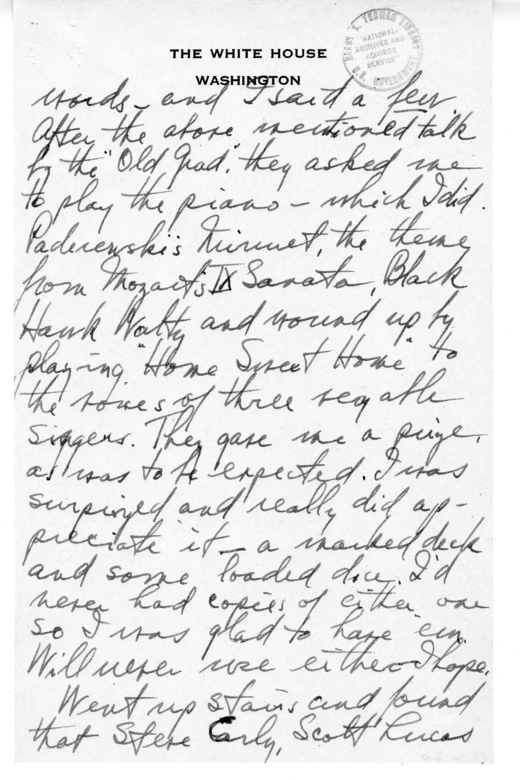 THE WHITE HOUSE
WASHINGTON
HARRY S. TRUMAN LIBRARY
NATIONAL
ARCHIVES AND
RECORDS
SERVICE
U.S. GOVERNMENT
words - and I said a few
After the above mentioned talk
by the "Old Grad," they asked me
to play the piano - which I did.
Paderewski's Minuet, the theme
from Mozart's IX Sonata, Black
Hawk Waltz and wound up by
playing "Home Sweet Home" to
the tones of three very able
singers. They gave me a prize,
as was to be expected. I was
surprized and really did ap-
preciate it - a marked deck
and some loaded dice. I'd
never had copies of either one
so I was glad to have em.
Will never use either I hope.
Went up stairs and found
that Steve Early, Scott Lucas